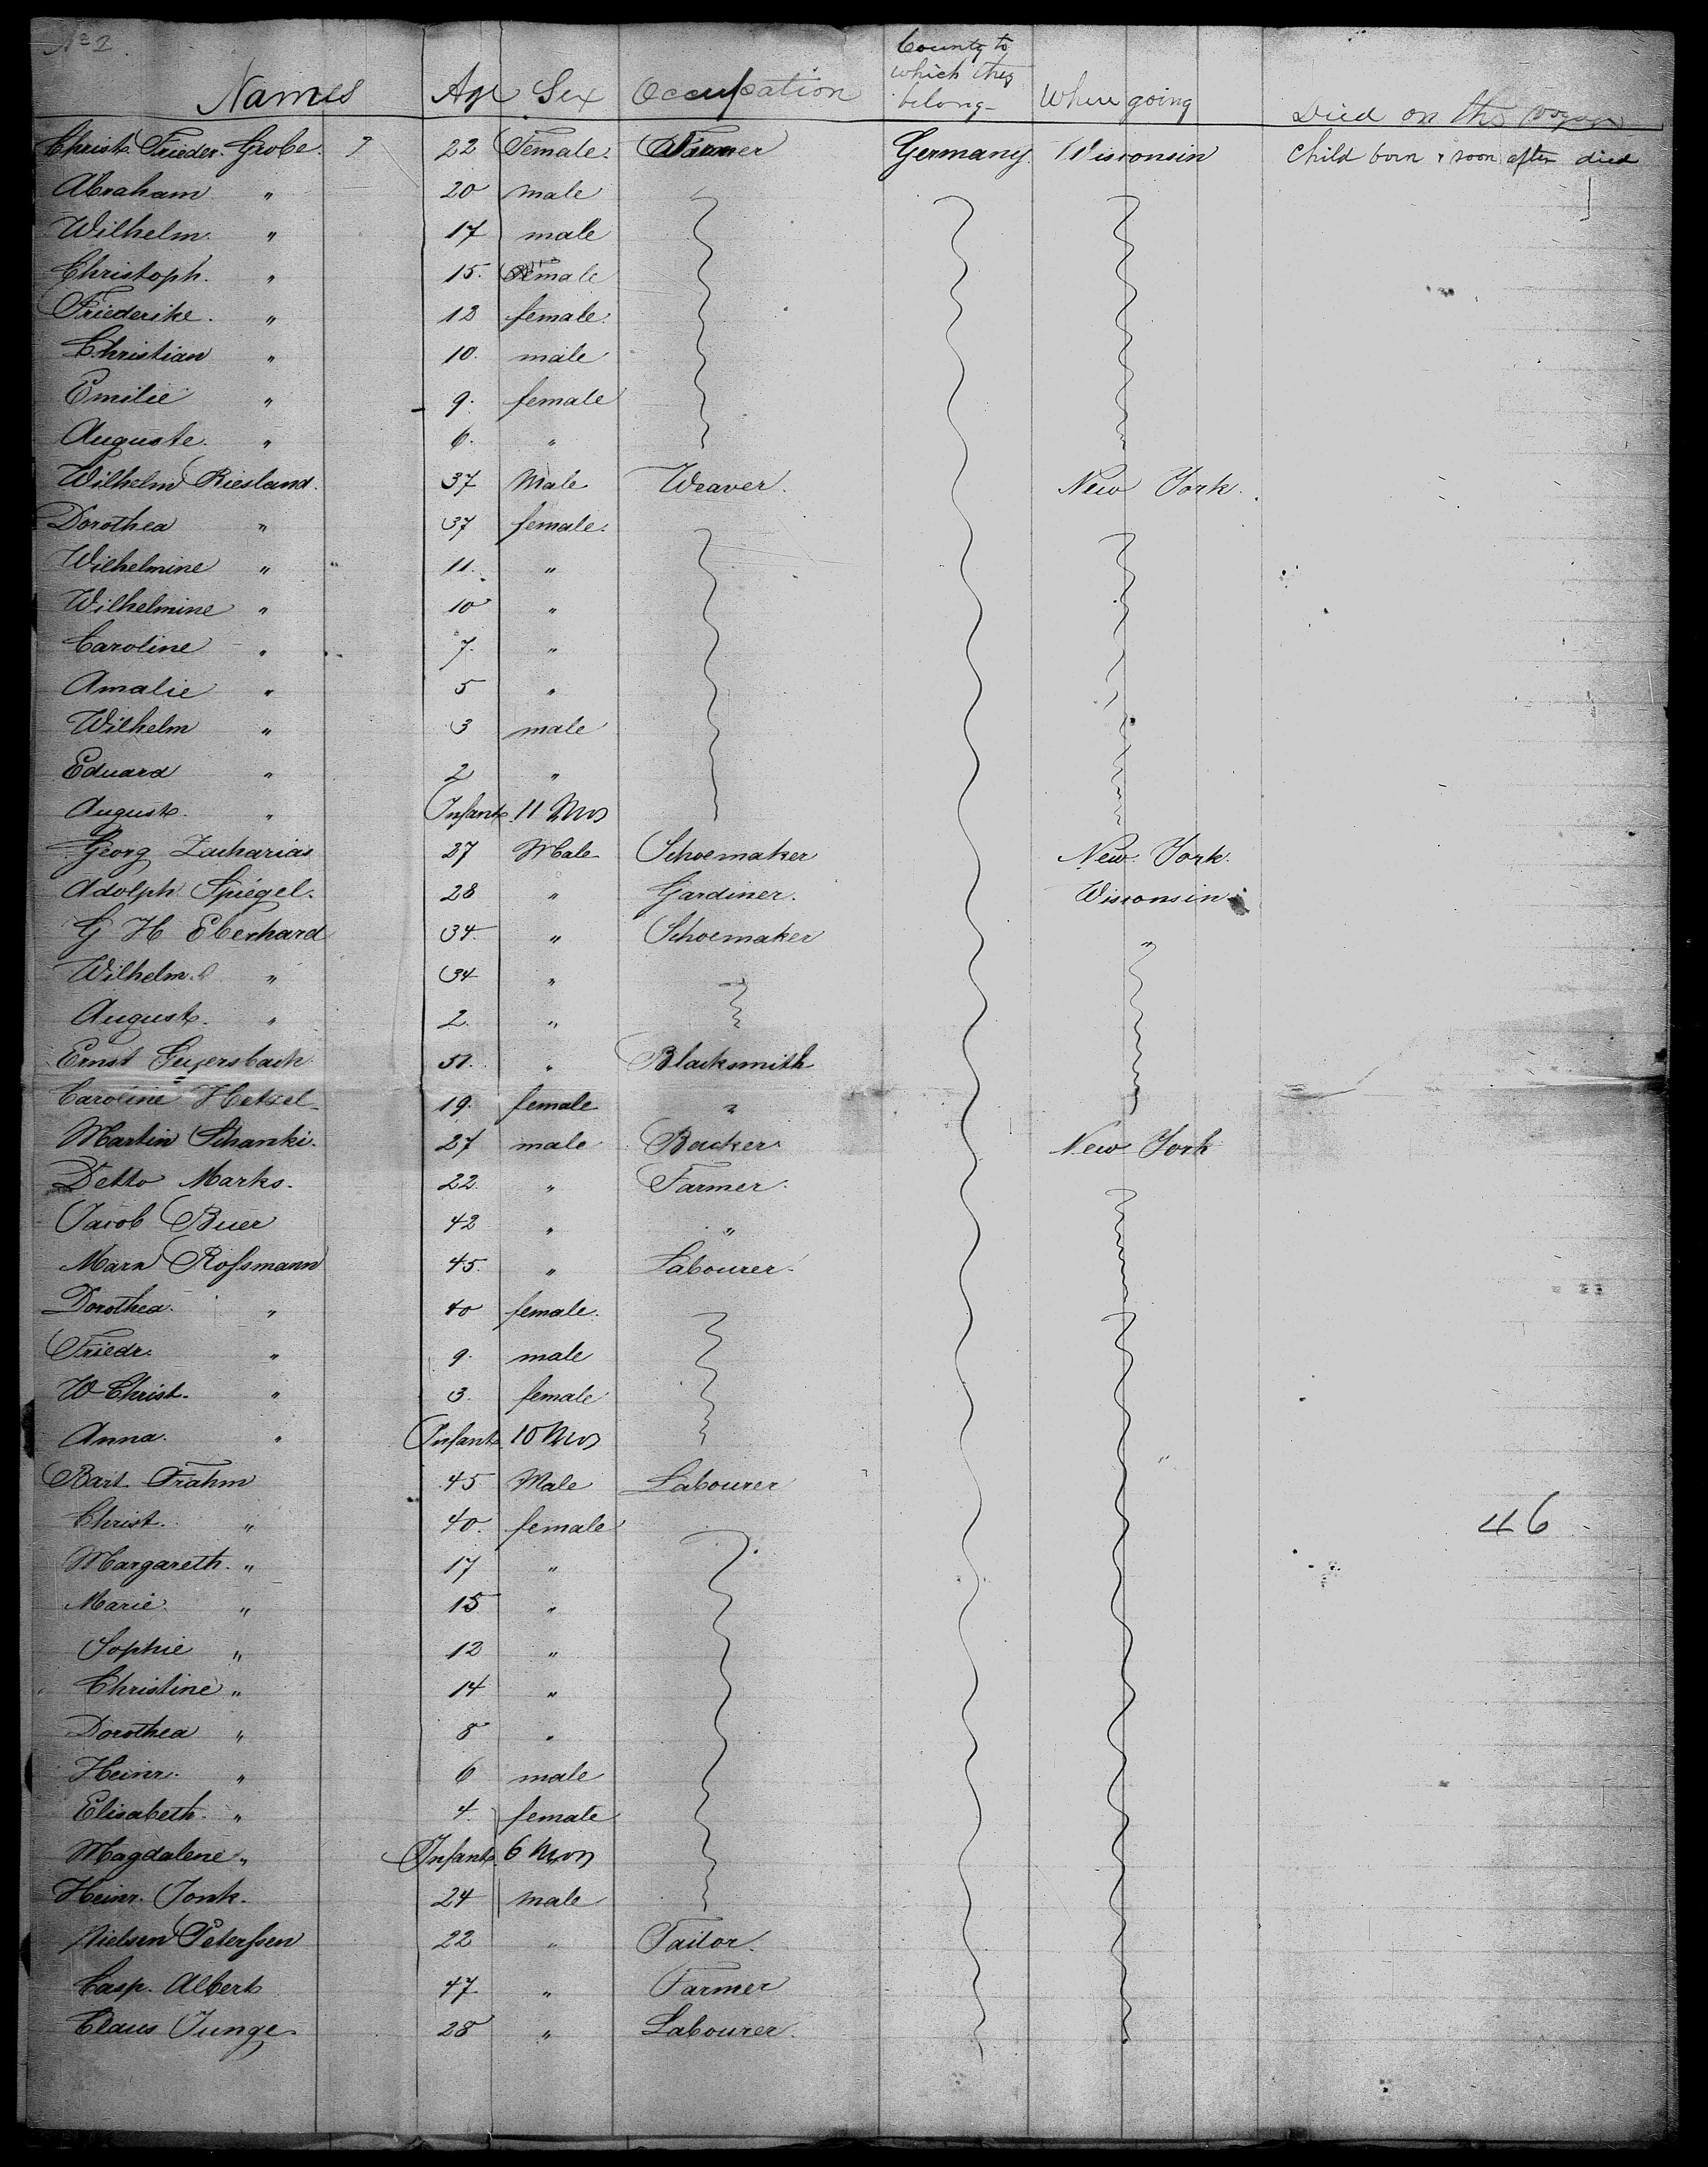 No 2.
Names Age Sex Occupation County to which they belong- Where going Died on the
Christ. Frieder. Grobe. 22 Female. Farmer Germany Wisconsin Child born & soon after died
Abraham " 20 male 1
Wilhelm. " 17 male
Christoph. " 15. male
Friederike. " 12 female.
Christian " 10. male
Emilie " 9. female
Auguste. " 6. "
Wilhelm Riesland. 37 Male Weaver. New York.
Dorothea " 37 female.
Wilhelmine " 11. "
Wilhelmine " 10 "
Caroline " 7. "
Amalie " 5 "
Wilhelm " 3 male
Eduard " 2 "
August. " Infant. 11 Mos
Georg Zacharias 27 Male Schoemaker New York.
Adolph Spiegel. 28 " Gardiner. Wisconsin
G H Eberhard 34. " Schoemaker "
Wilhelm. " 34 "
August. " 2. "
Ernst 51. " Blacksmith
Caroline Hetzel 19. female "
Martin Schanki. 27 male Backer. New York
Detto Marks. 22. " Farmer.
Jacob Buer 42 " "
Marx Roſsmann 45. " Labourer.
Dorothea. " 40 female.
Friedr. " 9. male
W Christ. " 3. female
Anna. " Infant 10 Mos
Bart Frahm 45 Male Labourer
Christ. " 40. female 46
Margareth. " 17 "
Marie. " 15 "
Sophie " 12 "
Christine " 14 "
Dorothea " 8 "
Heinr. " 6 male
Elisabeth. " 4. female
Magdalene " Infant. 6 Mos
Heinr. Jonk. 24 male
Nielsen Peterſsen 22 " Tailor.
Casp. Albert 47 " Farmer
Claus Junge 28 " Labourer.